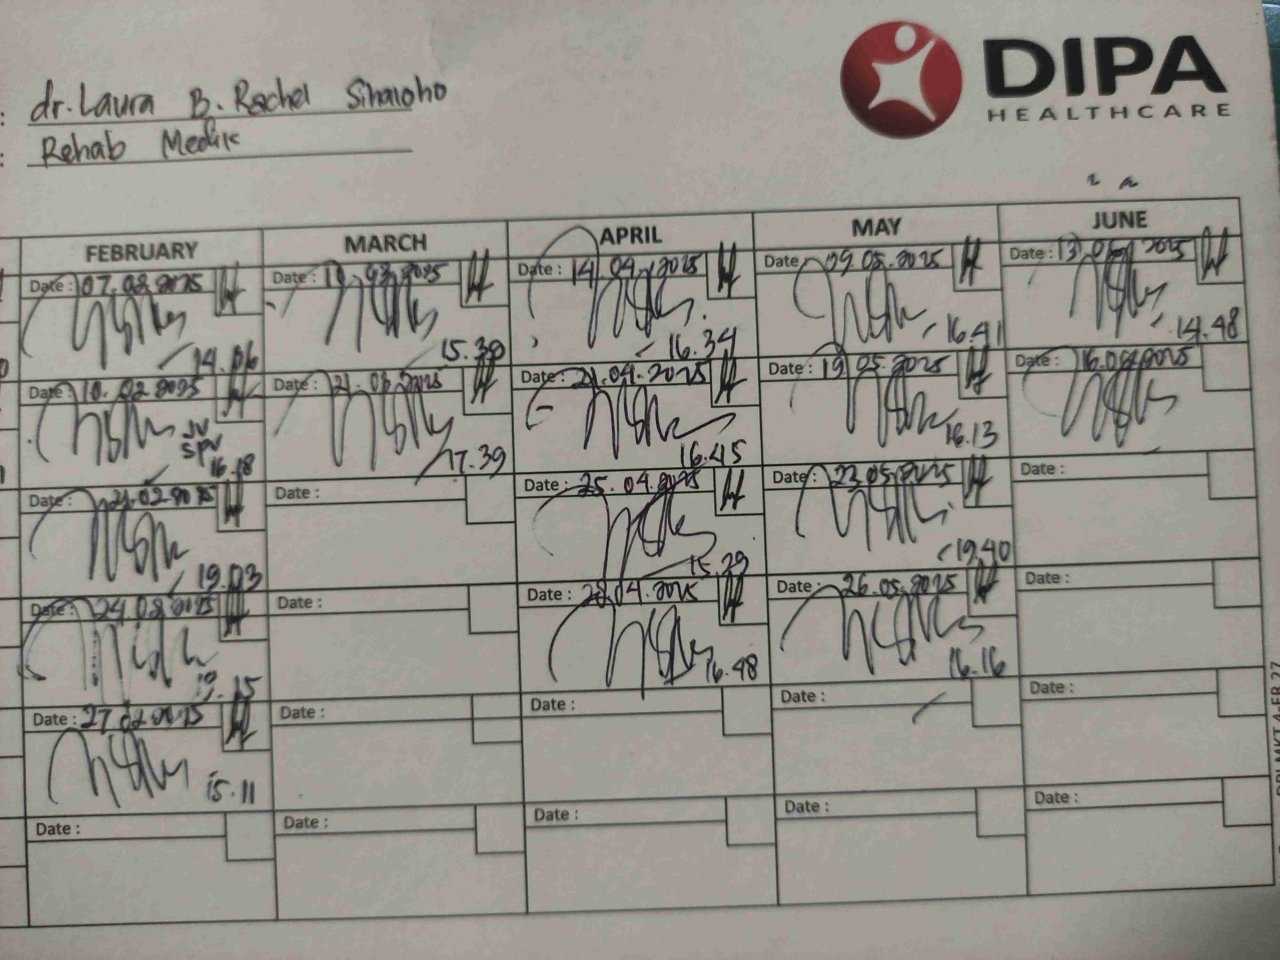 DIPA
HEALTHCARE
: dr. Laura B. Rachel Sihaloho
: Rehab Medik
FEBRUARY MARCH APRIL MAY JUNE
Date : 07.02.2025 Date : 10.03.2025 Date : 14.04.2025 Date : 09.05.2025 Date : 13.06.2025
14.06 15.30 16.34 16.41 14.48
Date : 10.02.2025 Date : 21.03.2025 Date : 21.04.2025 Date : 19.05.2025 Date : 16.06.2025
JV
spv
16.18 17.39 16.45 16.13
Date : 21.02.2025 Date : Date : 25.04.2025 Date : 23.05.2025 Date :
19.03 15.29 19.40
Date : 24.02.2025 Date : Date : 28.04.2025 Date : 26.05.2025 Date :
15 16.48 16.16
Date : 27.02.2025 Date : Date : Date : Date :
15.11
Date : Date : Date : Date : Date :